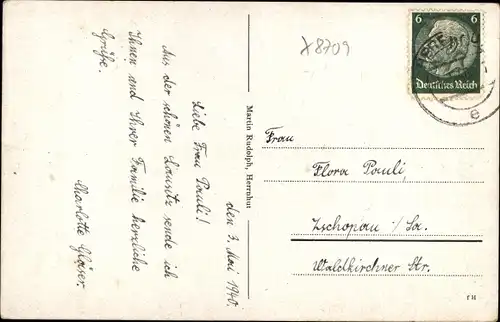 den 3. Mai 1940.
Liebe Frau Pauli!
Aus der schönen Lausitz sende ich
Ihnen und Ihrer Familie herzliche
Grüße.
Charlotte Gläser.
Martin Rudolph, Herrnhut
x8709
6 6
Deutsches Reich
e
Frau
Flora Pauli,
Zschopau i/Sa.
Waldkirchner Str.